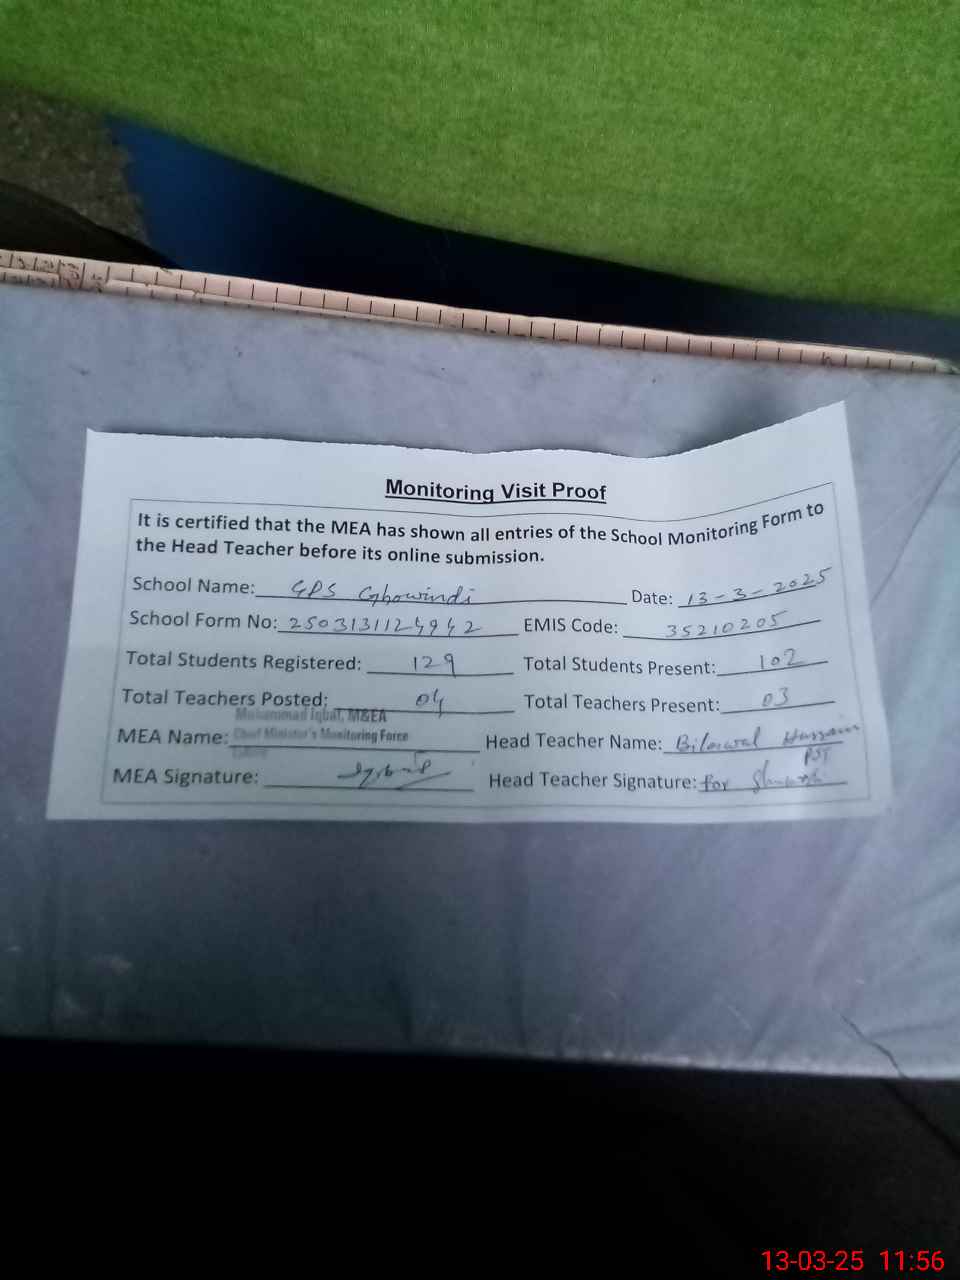 Monitoring Visit Proof
It is certified that the MEA has shown all entries of the School Monitoring Form to
the Head Teacher before its online submission.
School Name: GPS Ghowindi Date: 13-3-2025
School Form No: 2503131124942 EMIS Code: 35210205
Total Students Registered: 129 Total Students Present: 102
Total Teachers Posted: 04 Total Teachers Present: 03
Muhammad Iqbal, M&EA
MEA Name: Chief Minister's Monitoring Force Head Teacher Name: Bilawal Hussain
PST
MEA Signature: Head Teacher Signature: for
13-03-25 11:56